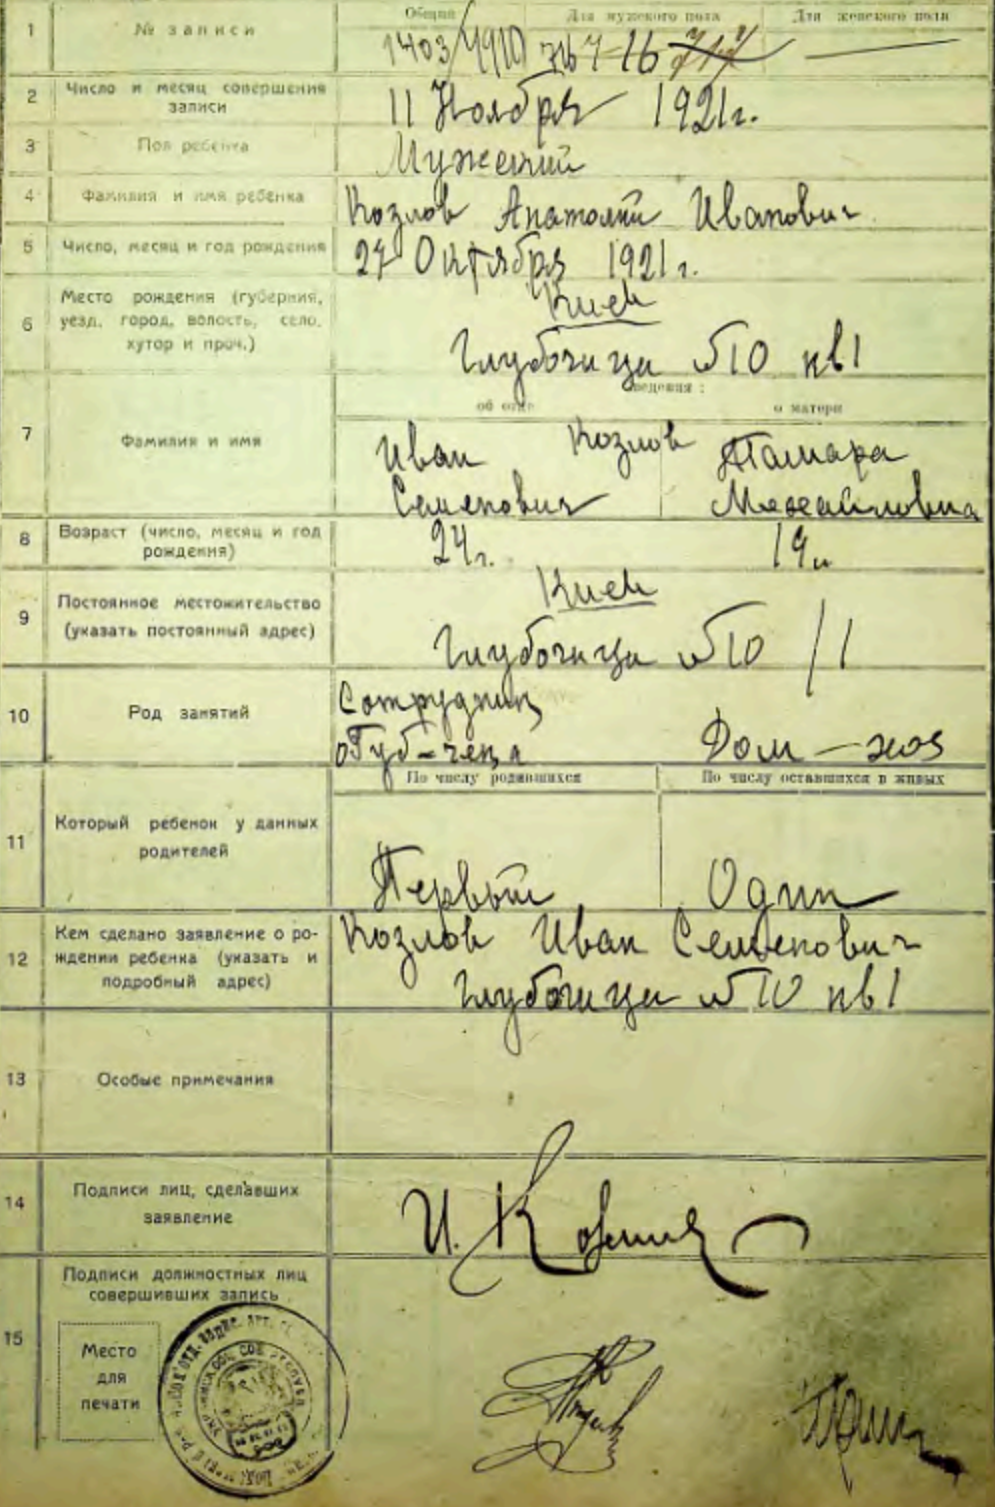 1
№ записи
Общий
Для мужского пола
Для женского пола
1403/4910 767-16 717
2
Число и месяц совершения
записи
11 Ноября 1921г.
3
Пол ребенка
Мужеский
4
Фамилия и имя ребенка
Козлов Анатолий Иванович
5
Число, месяц и год рождения
27 Октября 1921г.
6
Место рождения (губерния,
уезд, город, волость, село,
хутор и проч.)
Киев
Глубочица №10 кв1
Сведения:
об отце
о матери
7
Фамилия и имя
Иван Козлов Тамара
Семенович Михайловна
8
Возраст (число, месяц и год
рождения)
24г.
19
9
Постоянное местожительство
(указать постоянный адрес)
Киев
Глубочица №10 / 1
10
Род занятий
Сотрудник
Губ-чека Дом-хоз
По числу родившихся
По числу оставшихся в живых
11
Который ребенок у данных
родителей
Первый
Один
12
Кем сделано заявление о ро-
ждении ребенка (указать и
подробный адрес)
Козлов Иван Семенович
Глубочица №10 кв1
13
Особые примечания
14
Подписи лиц, сделавших
заявление
И.
15
Подписи должностных лиц
совершивших запись
Место
для
печати